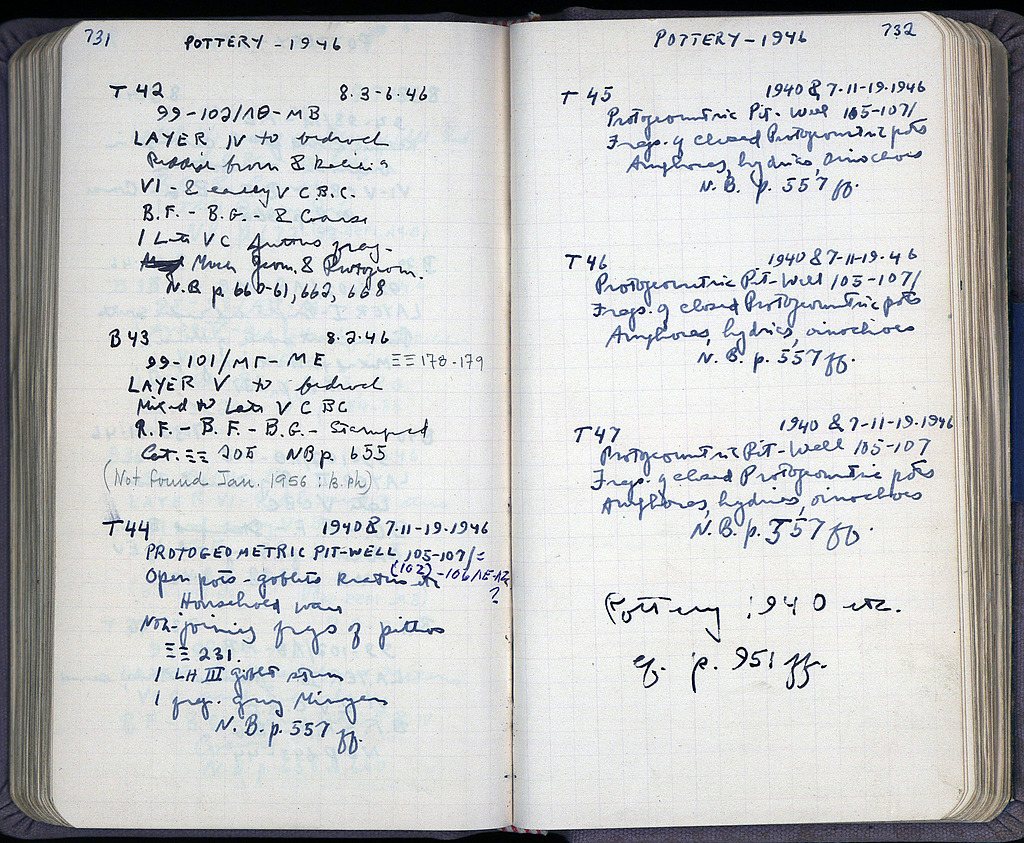 731
POTTERY - 1946
T 42 8.3-6.46
99-102/ΛΘ-ΜΒ
LAYER IV to bedrock
from 8
VI - & early V C B.C.
B.F. - B.G. - & Coarse
1 Late V C frag.
Much Geom. & Protogeom.
N.B p. 660-61, 662, 668
B 43 8.2.46
99-101/ΜΓ-ΜΕ ΞΞ 178-179
LAYER V to bedrock
Mixed to Late V C BC
R.F. - B.F. - B.G. - Stamped
Cat. ΞΞ 205 NB p. 655
(Not found Jan. 1956 : B.Ph)
T 44 1940 & 7-11-19.1946
PROTOGEOMETRIC PIT-WELL, 105-107/=
(102) - 106/ΛΕ-ΛΖ
Open pots - goblets kraters etc ?
Household ware
Non-joining frags of pithos
ΞΞ 231.
1 LH III goblet stem
1 frg. gray Minyan
N.B. p. 557 ff.
732
POTTERY - 1946
T 45 1940 & 7-11-19.1946
Protogeometric Pit-Well 105-107/
Frags. of closed Protogeometric pots
Amphores, hydries, oinochoes
N.B. p. 557 ff.
T 46 1940 & 7-11-19.46
Protogeometric Pit-Well 105-107/
Frags. of closed Protogeometric pots
Amphores, hydries, oinochoes
N.B. p. 557 ff.
T 47 1940 & 7-11-19.1946
Protogeometric Pit-Well 105-107
Frags. of closed Protogeometric pots
Amphores, hydries, oinochoes
N.B. p. 557 ff.
Pottery 1940 etc.
cf. p. 951 ff.